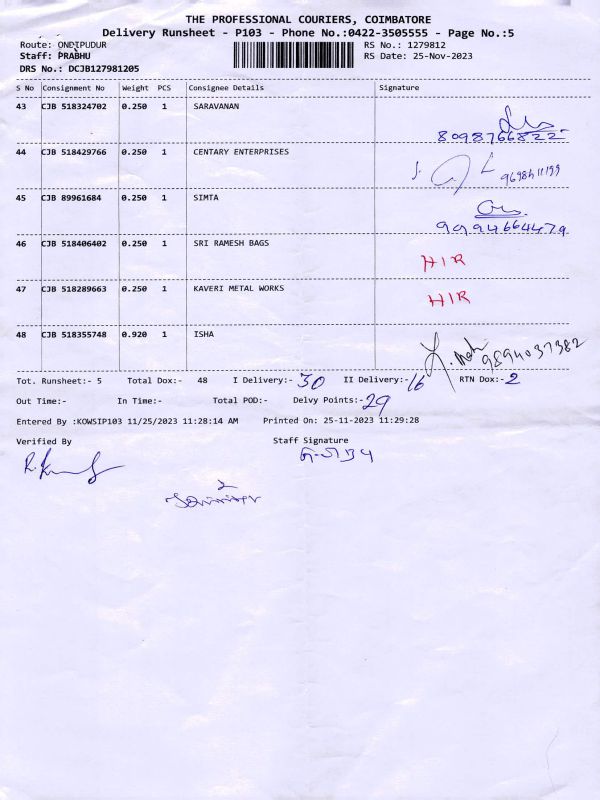 THE PROFESSIONAL COURIERS, COIMBATORE
Delivery Runsheet - P103 - Phone No.:0422-3505555 - Page No.:5
Route: ONDIPUDUR RS No.: 1279812
Staff: PRABHU RS Date: 25-Nov-2023
DRS No.: DCJB127981205
S No Consignment No Weight PCS Consignee Details Signature
43 CJB 518324702 0.250 1 SARAVANAN
8098766822
44 CJB 518429766 0.250 1 CENTARY ENTERPRISES
45 CJB 89961684 0.250 1 SIMTA
9994664479
46 CJB 518406402 0.250 1 SRI RAMESH BAGS
HIR
47 CJB 518289663 0.250 1 KAVERI METAL WORKS
HIR
48 CJB 518355748 0.920 1 ISHA
9894037382
Tot. Runsheet:- 5 Total Dox:- 48 I Delivery:- 30 II Delivery:- 16 RTN Dox:- 2
Out Time:- In Time:- Total POD:- Delvy Points:- 29
Entered By :KOWSIP103 11/25/2023 11:28:14 AM Printed On: 25-11-2023 11:29:28
Verified By Staff Signature